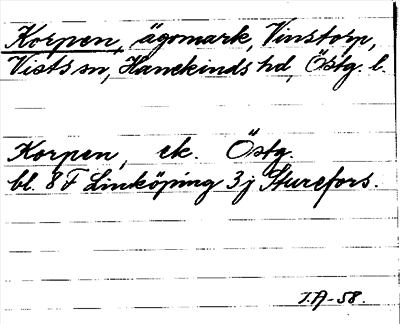 Korpen, ägomark, Vinstorp,
Vists sn, Hanekinds hd, Östg. l.
Korpen, ek. Östg.
bl. 8 F Linköping 3 j Sturefors.
I.A-58.